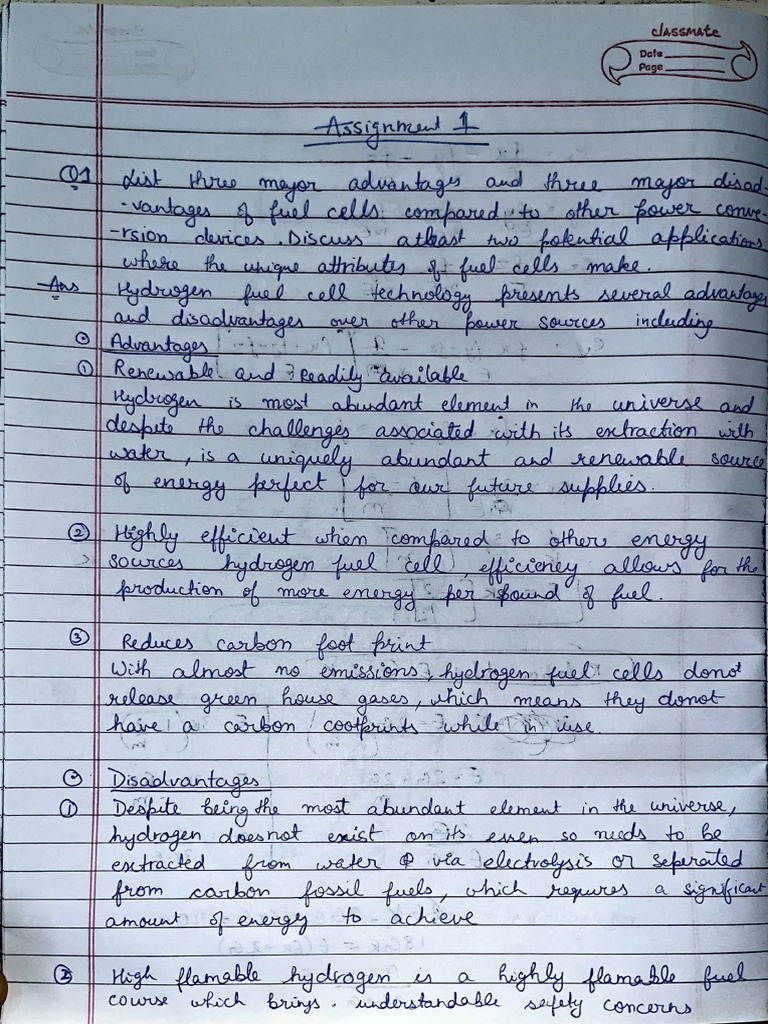 classmate
Date
Page
Assignment 1
Q1 List three major advantages and three major disad-
-vantages of fuel cells compared to other power conve-
-rsion devices. Discuss atleast two potential applications
where the unique attributes of fuel cells make.
Ans Hydrogen fuel cell technology presents several advantages
and disadvantages over other power sources including
Advantages
① Renewable and Readily available
Hydrogen is most abundant element in the universe and
despite the challenges associated with its extraction with
water, is a uniquely abundant and renewable source
of energy perfect for our future supplies.
② Highly efficient when compared to other energy
sources hydrogen fuel cell efficiency allows for the
production of more energy per pound of fuel.
③ Reduces carbon foot print
With almost no emissions, hydrogen fuel cells donot
release green house gases, which means they donot
have a carbon cootprints while in use.
Disadvantages
① Despite being the most abundant element in the universe,
hydrogen doesnot exist on its essen so needs to be
extracted from water via electrolysis or seperated
from carbon fossil fuels, which requres a significant
amount of energy to achieve
② High flamable hydrogen is a highly flamable fuel
course which brings. understandable sefety concerns